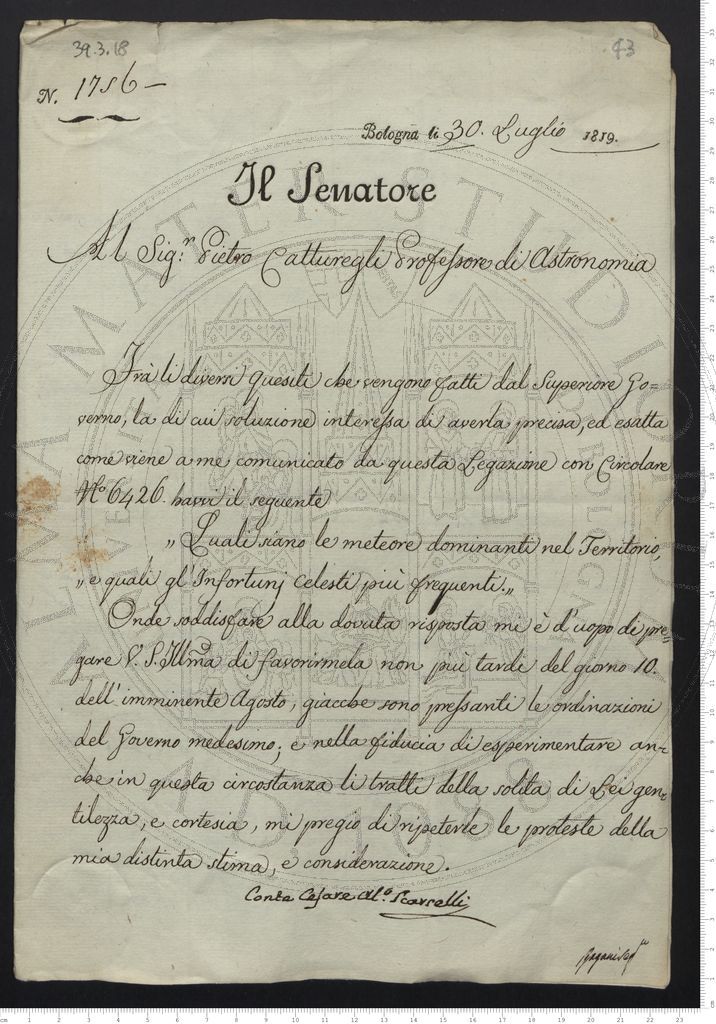 39.3.18
43
N. 1756 —
Bologna li 30. Luglio 1819.
Il Senatore
Al Sig.r Pietro Catturegli Professore di Astronomia
Frà li diversi Quesiti che vengono fatti dal Superiore Go=
verno, la di cui soluzione interessa di averla precisa, ed esatta
come viene a me comunicato da questa Legazione con Circolare
N.o 6426. havvi il seguente
„ Quali siano le meteore dominanti nel Territorio,
„ e quali gl'Infortunj celesti più frequenti.„
Onde soddisfare alla dovuta risposta mi è d'uopo di pre=
gare V. S. Illma di favorirmela non più tardi del giorno 10.
dell'imminente Agosto, giacche sono pressanti le ordinazioni
del Governo medesimo; e nella fiducia di esperimentare an=
che in questa circostanza li tratti della solita di Lei gen=
tilezza, e cortesia, mi pregio di ripeterle le proteste della
mia distinta stima, e considerazione.
Conte Cesare Al.o Scarselli
ALMA MATER STUDIORUM
A.D. 1088